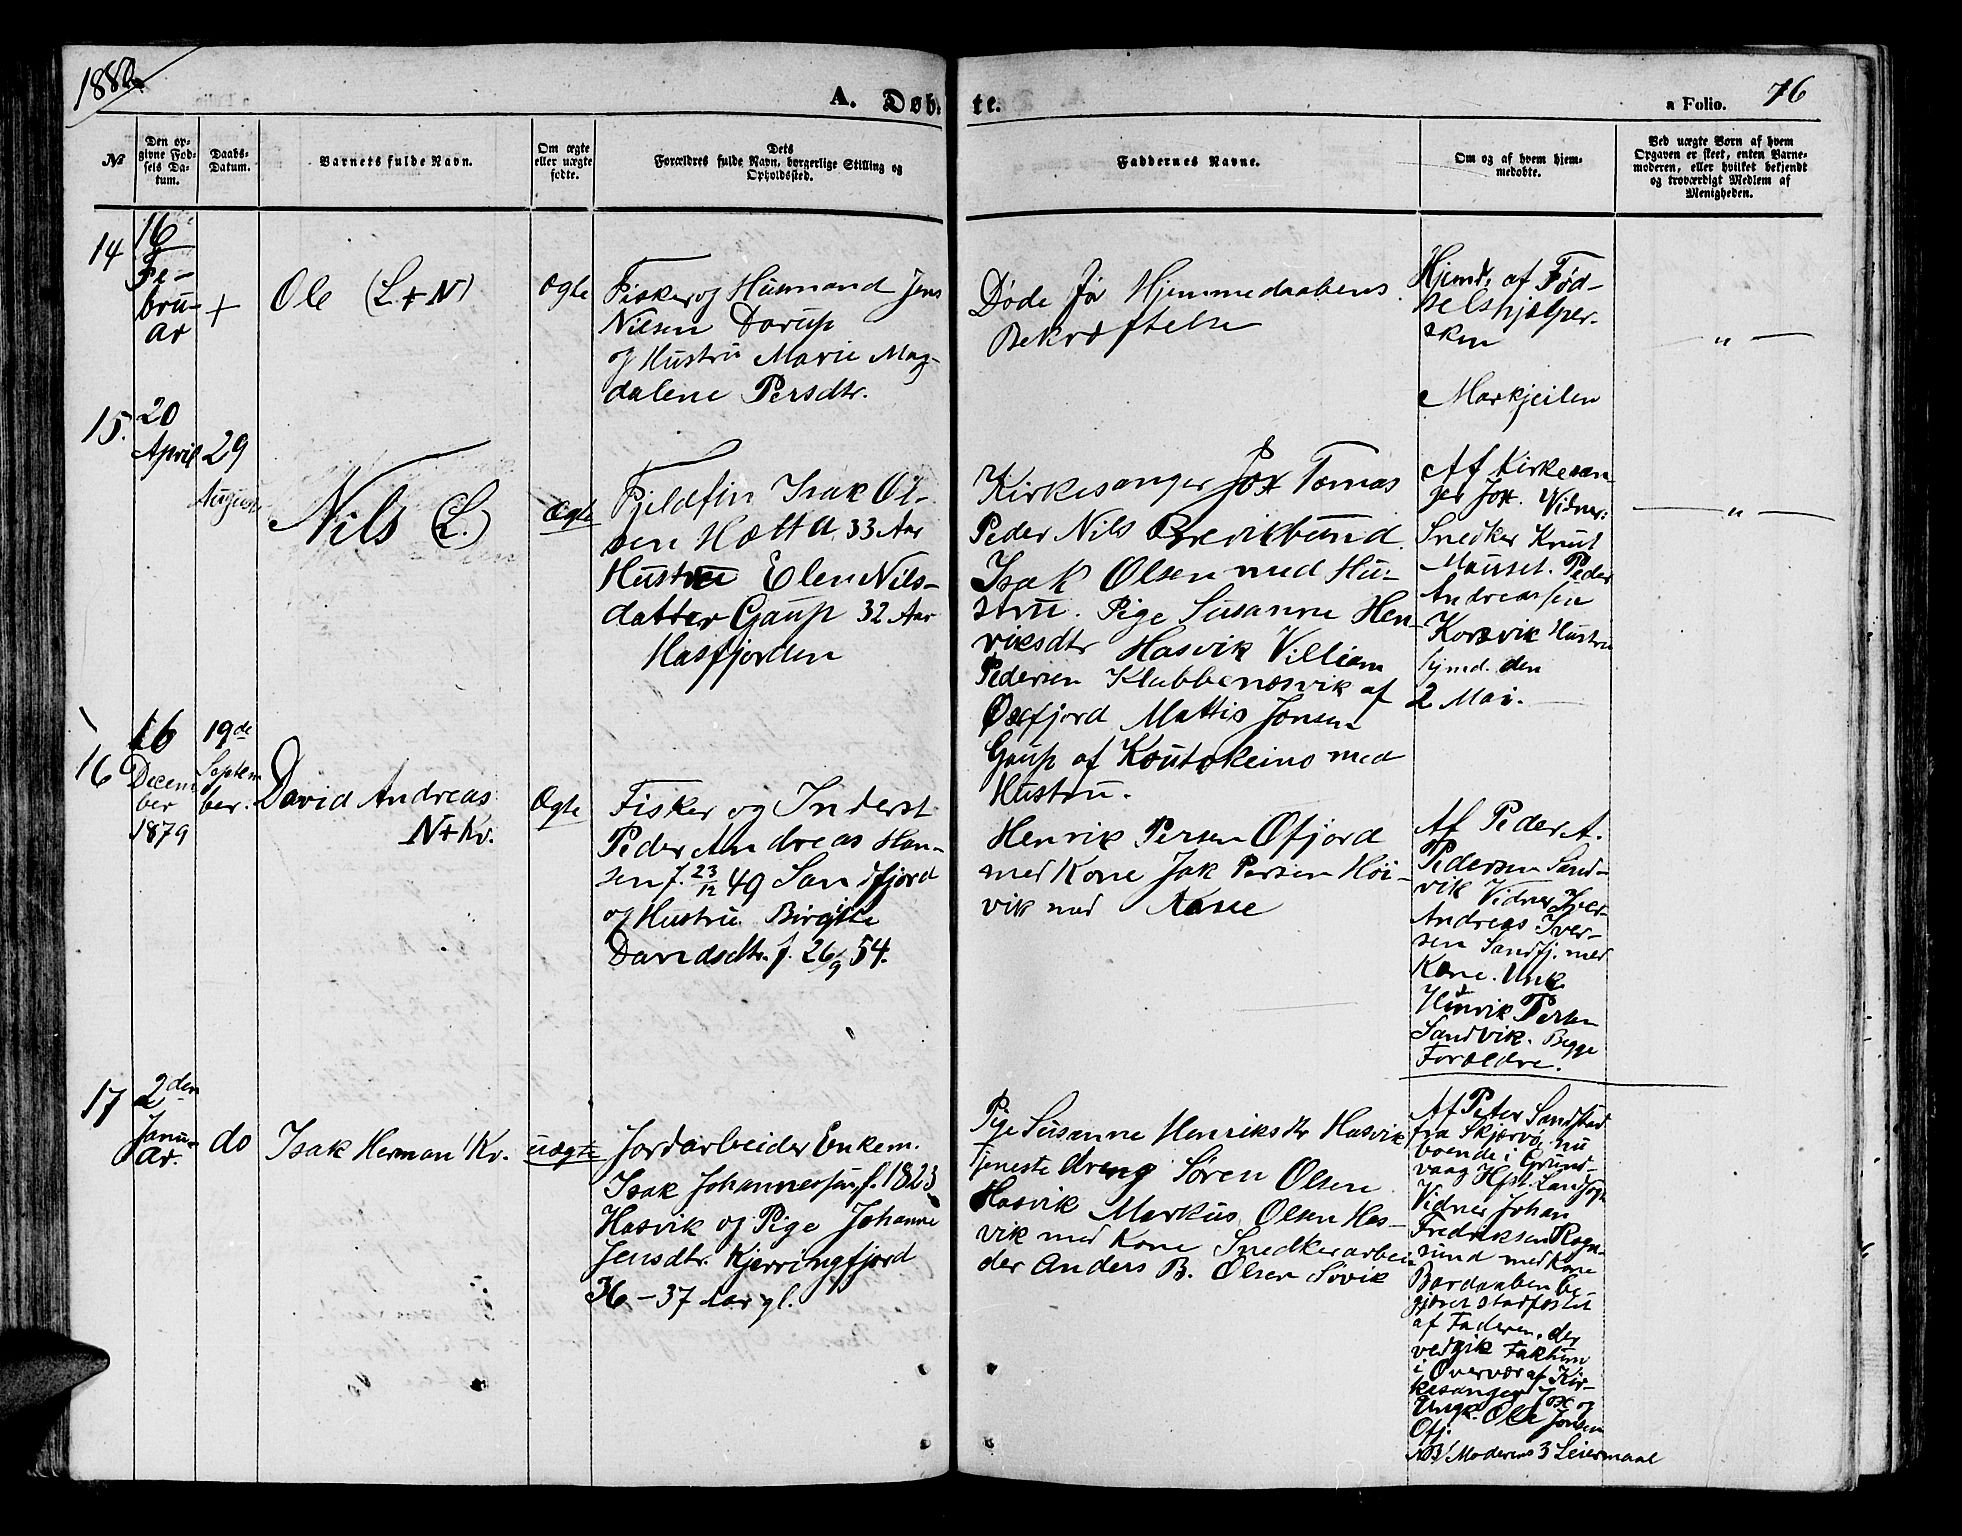 1880
A. Døb-
te.
a Folio. 76
№
Den op-
givne Fød-
sels Da-
tum.
Daabs-
Datum.
Barnets fulde Navn.
Om ægte
eller uægte
fødte.
Dets
Forældres fulde Navn, borgerlige Stilling og
Opholdssted.
Faddernes Navne.
Om og af hvem hjem-
medøbte.
Ved uægte Børn af hvem
Opgaven er skeet, enten Barne-
moderen, eller hvilket bekjendt
og troværdigt Medlem af
Menigheden.
14
16
Fe-
bru-
ar
+
Ole (L + N)
Ægte
Fisker og Husmand Jens
Nilsen Dorup
og Hustru Marie Mag-
dalene Persdtr.
Døde før Hjemmedaabens
Bekræftelse
Hjemd. af Fød-
selshjælper-
sken
Markjeilen
" —
15.
20
April
29
August
Nils (L.)
Ægte
Fjeldfin Isak Ol-
sen Hætta 33 Aar
Hustru Elen Nils-
datter Gaup 32 Aar
Hasfjorden
Kirkesanger Jox Tomas
Peder Nils Breviksund.
Isak Olsen med Hu-
stru. Pige Susanne Hen-
riksdtr Hasvik Villiam
Pedersen Klubbenæsvik af
Øxfjord Mattis Jonsen
Gaup af Koutokeino med
Hustru.
Af Kirkesan-
ger Jox. Vidner:
Snedker Knut
Mauset. Peder
Andreassen
Korsvik Hustru
hjmd. den
2 Mai.
— " —
16
16
Decem
ber
1879
19de
Septem
ber.
David Andreas
N+Kv.
Ægte
Fisker og Inderst
Peder Andreas Han-
sen f. 23/12 49 Sandfjord
og Hustru Birgitte
Davidsdtr. f. 26/9 54.
Henrik Persen Øfjord
med Kone Jak Persen Høi-
vik med Kone
Af Peder A.
Pedersen Sand-
vik Vidner Iver
Andreas Iver-
sen Sandfj. med
Kone. Unk
Henrik Persen
Sandvik. Begge
Forældre.
17
2den
Janu-
ar.
do
Isak Herman Kv.
uægte
Jordarbeider Enkem.
Isak Johannessen f. 1823
Hasvik og Pige Johanne
Jensdtr. Kjerringfjord
36-37 Aar gl.
Pige Susanne Henriksdtr Hasvik
tjenestedreng Søren Olsen
Hasvik Markus Olsen Has-
vik med Kone Snedkerarbei-
der Anders B. Olsen Søvik
Af Peter Sandstad
fra Skjærvø, nu
boende i Grund-
vaag Hfst. Landsogn
Vidner Johan
Fredriksen Rogn-
sund med Kone
Bardaaben be-
gjæret stadfæstet
af Faderen, der
vedgik Faktum
i Overvær af Kir-
kesanger Jox og
Ungk. Ole Jonsen
Øfj.
NB Moderens 3 Leiermaal